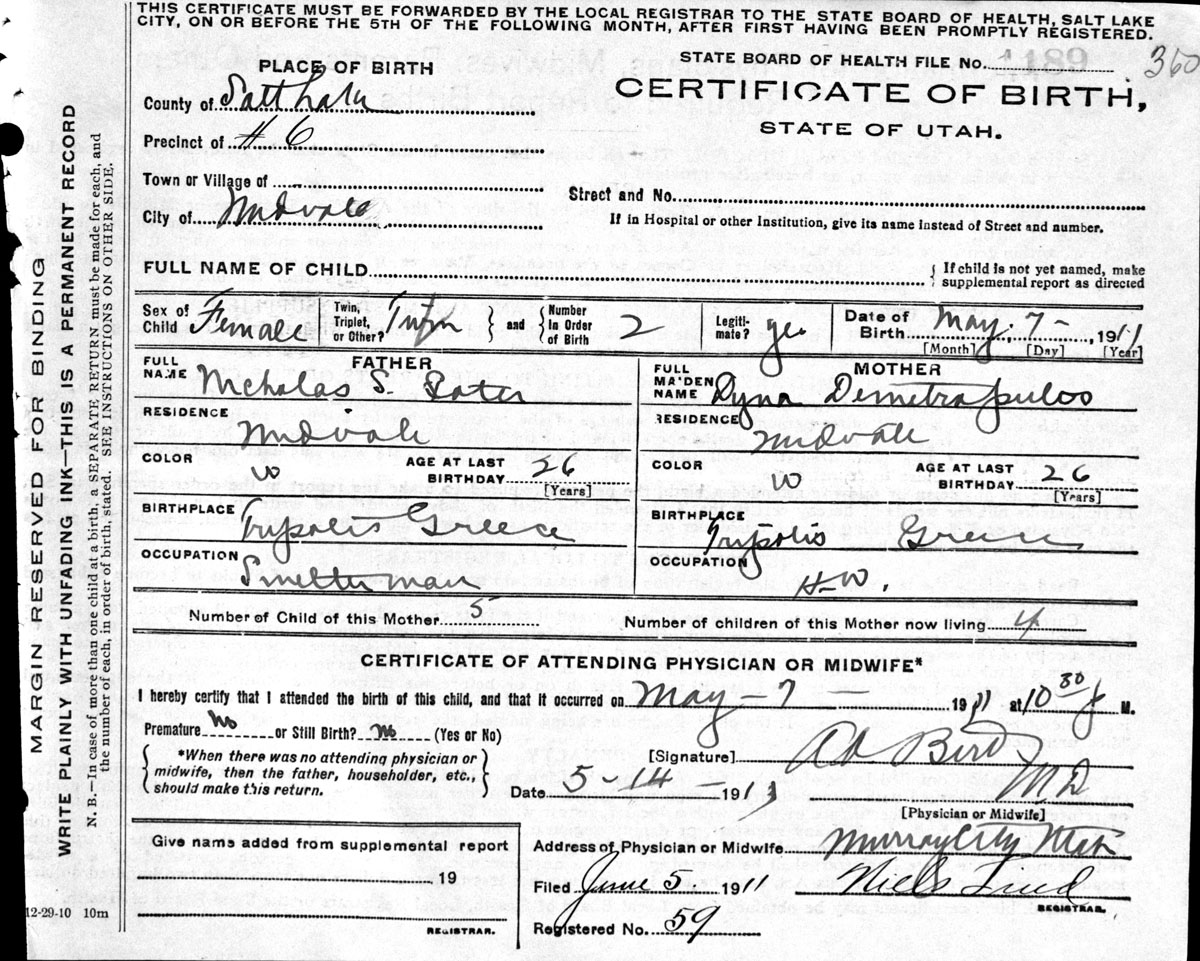 THIS CERTIFICATE MUST BE FORWARDED BY THE LOCAL REGISTRAR TO THE STATE BOARD OF HEALTH, SALT LAKE
CITY, ON OR BEFORE THE 5TH OF THE FOLLOWING MONTH, AFTER FIRST HAVING BEEN PROMPTLY REGISTERED.
MARGIN RESERVED FOR BINDING
WRITE PLAINLY WITH UNFADING INK—THIS IS A PERMANENT RECORD
N. B.—In case of more than one child at a birth, a SEPARATE RETURN must be made for each, and
the number of each, in order of birth, stated. SEE INSTRUCTIONS ON OTHER SIDE.
PLACE OF BIRTH
County of Salt Lake
Precinct of #6
Town or Village of -
City of Midvale
STATE BOARD OF HEALTH FILE No. 1189
360
CERTIFICATE OF BIRTH,
STATE OF UTAH.
Street and No.
If in Hospital or other Institution, give its name instead of Street and number.
FULL NAME OF CHILD
If child is not yet named, make
supplemental report as directed
Sex of Child Female
Twin, Triplet, or Other?
and
Number in Order of Birth 2
Legitimate? yes
Date of Birth May 7 - 1911
[Month] [Day] [Year]
FATHER
FULL NAME Nicholas S.
RESIDENCE Midvale
COLOR W
AGE AT LAST BIRTHDAY 26
[Years]
BIRTHPLACE Tripolis Greece
OCCUPATION Smelterman
MOTHER
FULL MAIDEN NAME Dyna Demetrapulos
RESIDENCE Midvale
COLOR W
AGE AT LAST BIRTHDAY 26
[Years]
BIRTHPLACE Tripolis Greece
OCCUPATION H-W.
Number of Child of this Mother 5
Number of children of this Mother now living 4
CERTIFICATE OF ATTENDING PHYSICIAN OR MIDWIFE*
I hereby certify that I attended the birth of this child, and that it occurred on May - 7 - 1911 at 10 30 P M.
Premature No or Still Birth? No (Yes or No)
*When there was no attending physician or
midwife, then the father, householder, etc.,
should make this return.
[Signature] Bird
MD
Date 5-14- 191
[Physician or Midwife]
Give name added from supplemental report
19
REGISTRAR.
Address of Physician or Midwife Murray City Utah
Filed June 5. 1911 Niels Lind
REGISTRAR.
Registered No. 59
12-29-10 10m